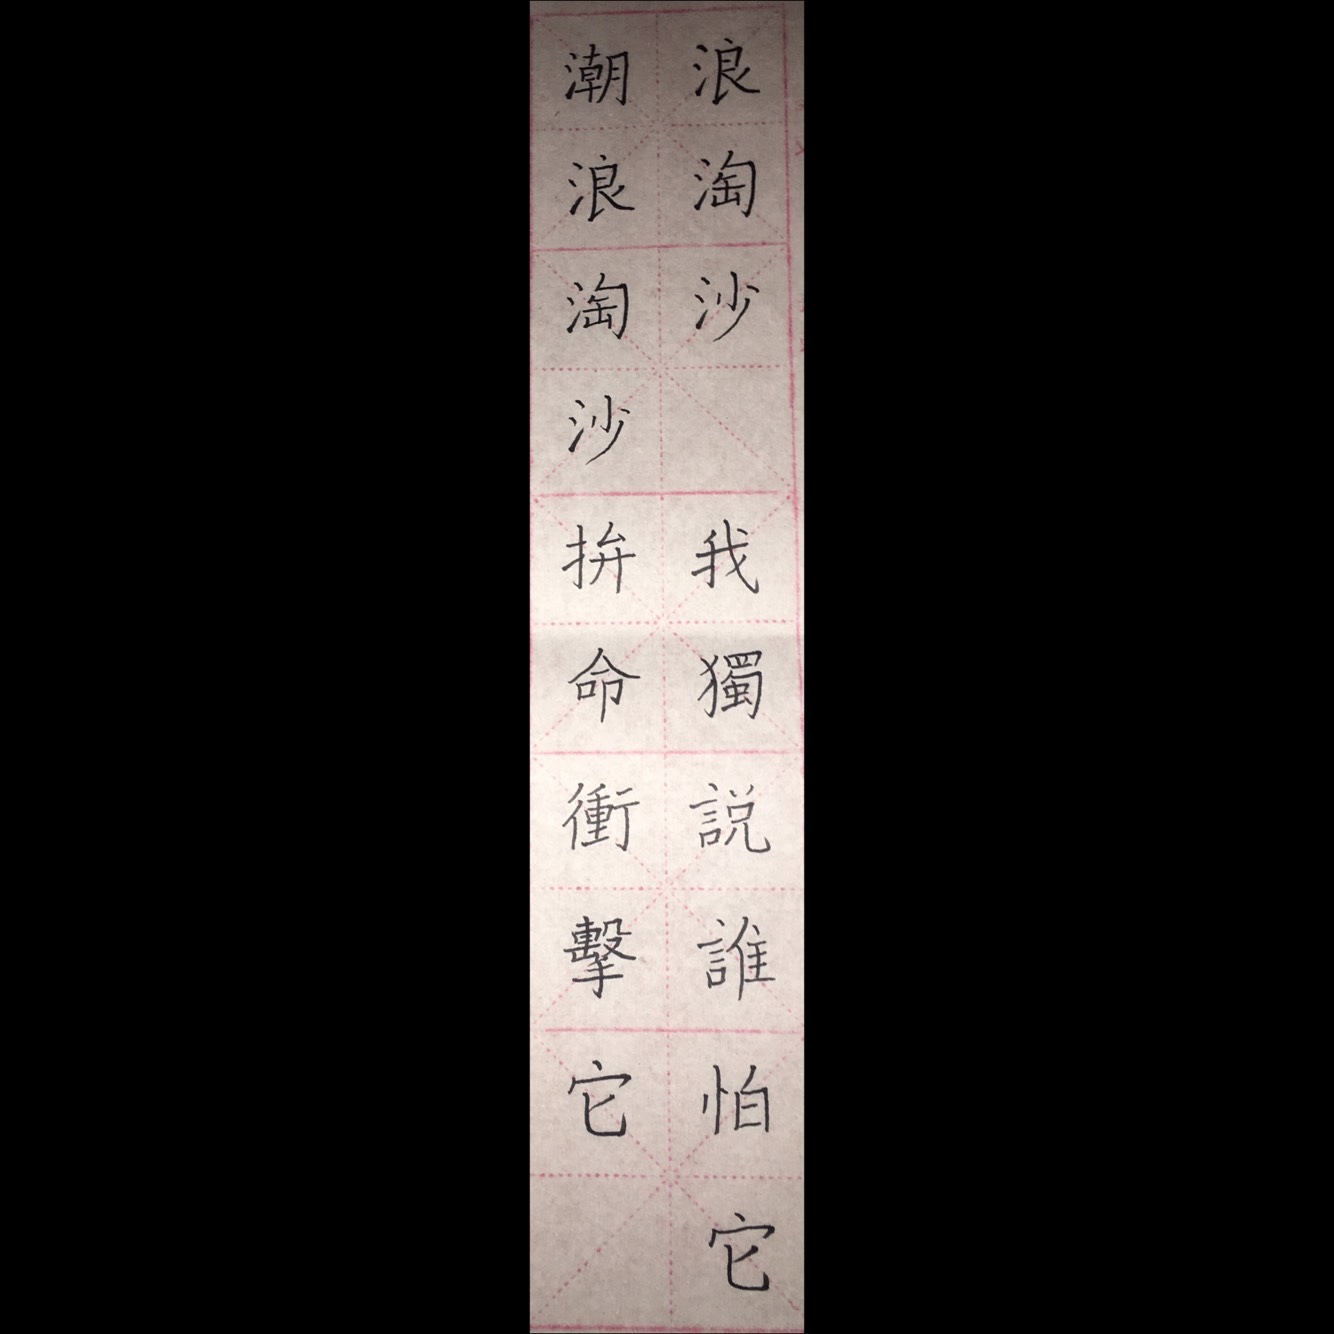 浪淘沙 我獨説誰怕它
潮浪淘沙拚命衝擊它